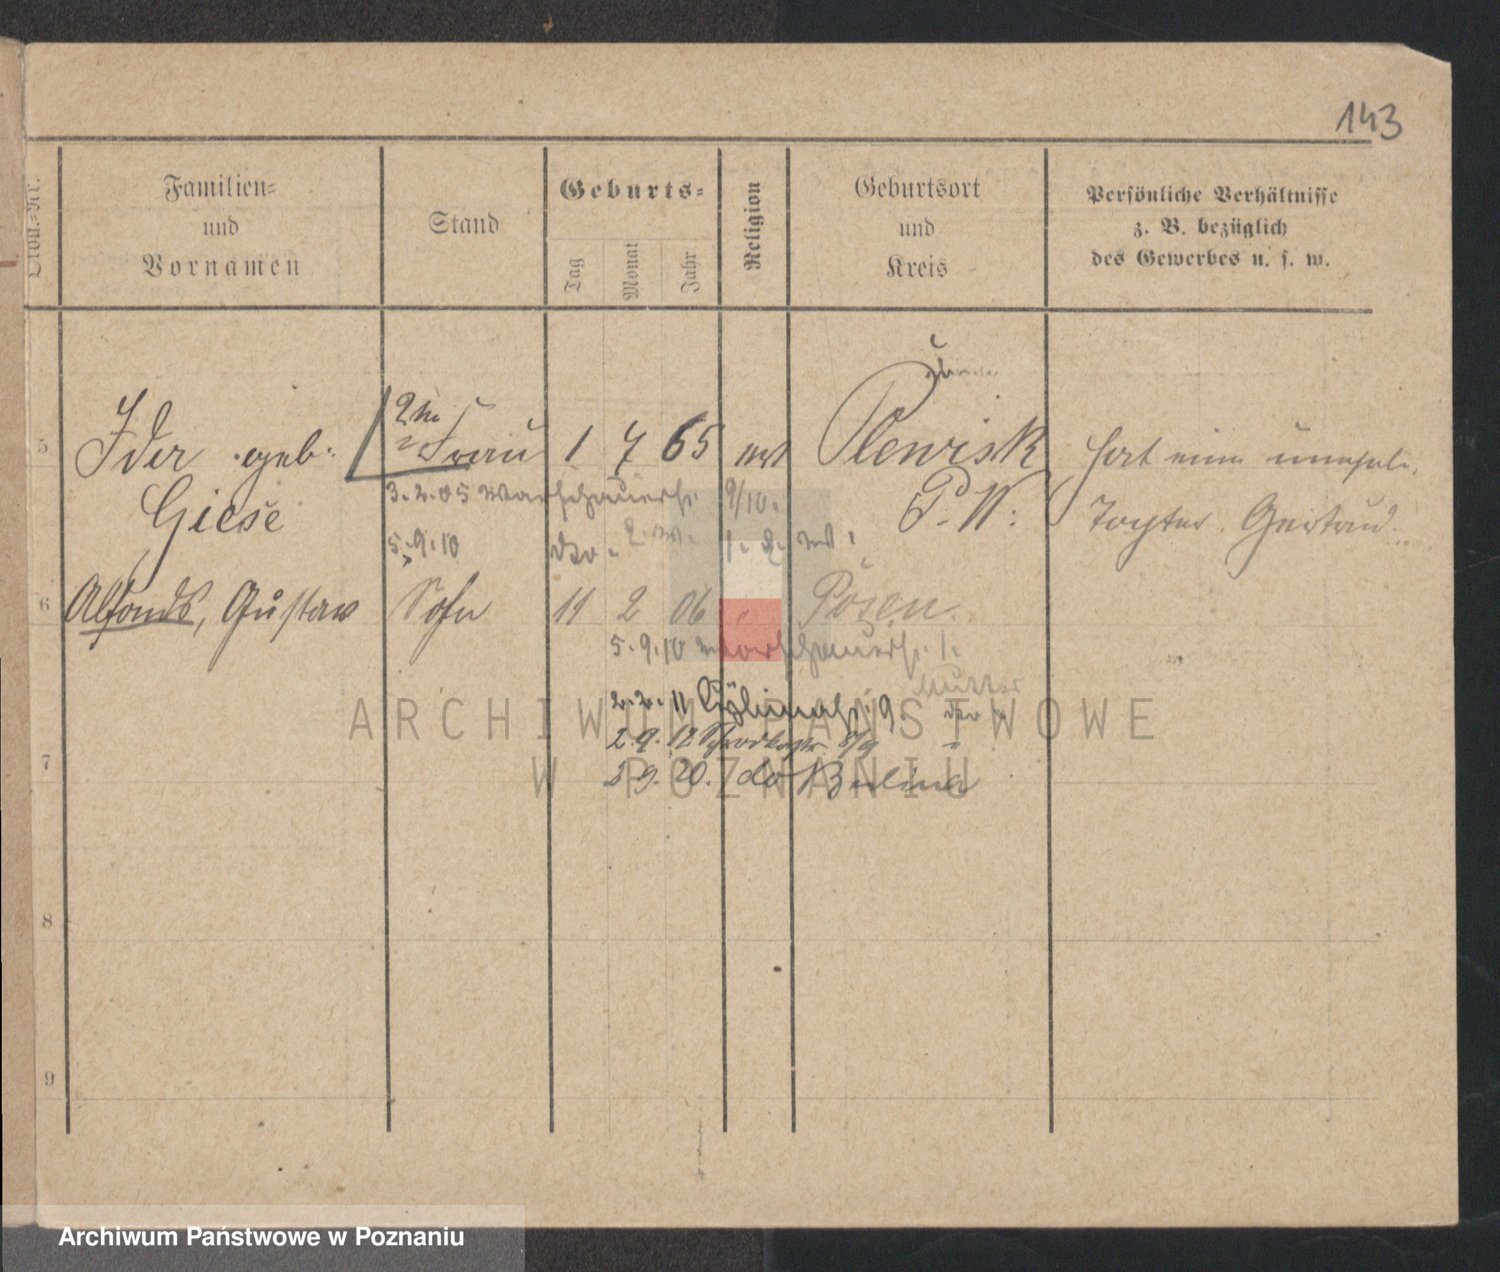 143
Familien=
und
Vornamen
Stand
Geburts=
Tag
Monat
Jahr
Religion
Geburtsort
und
Kreis
Persönliche Verhältnisse
z. B. bezüglich
des Gewerbes u. s. w.
5 Ider geb: Frau 1 7 65 Plewisk hat eine unehel.
Giese P. W: Tochter Gertrud
3.2.05 Warschauerstr. 9/10.
5.9.10 dto.
6 Alfons, Gustav Sohn 11 2 06 " Posen.
5.9.10 Warschauerstr. 1.
Mutter
2.2.11 9. dto
2.9.12 8/9 "
7
3.9.20. do Berlina
8
9
ARCHIWUM PAŃSTWOWE
W POZNANIU
Archiwum Państwowe w Poznaniu